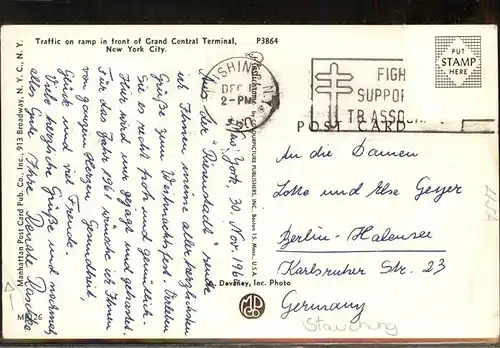 Traffic on ramp in front of Grand Central Terminal,
New York City.
P3864
New York 30. Nov. 196
Aus der "Riesenstadt" sende
ich Ihnen meine allerherzlichsten
Grüße zum Weihnachtsfest. Verleben
Sie es recht froh und gemütlich.
Hier wird nur gejagt und gehastet.
Für das Jahr 1961 wünsche ich Ihnen
von ganzem Herzen Gesundheit,
Glück und viel Freude.
Viele herzliche Grüße und nochmals
alles Gute Ihre Renate
Manhattan Post Card Pub. Co., Inc., 913 Broadway, N. Y. C., N. Y.
DEXTER PICTURE PUBLISHERS, INC., Boston 15, Mass., U.S.A.
Devaney, Inc. Photo
DEC 1
2-PM
N.Y.
FIGH
SUPPOR
TB ASSO
PUT
STAMP
HERE
POST CARD
An die Damen
Lotte und Else Geyer
Berlin-Halensee
Karlsruher Str. 23
Germany
USA
Stauchung